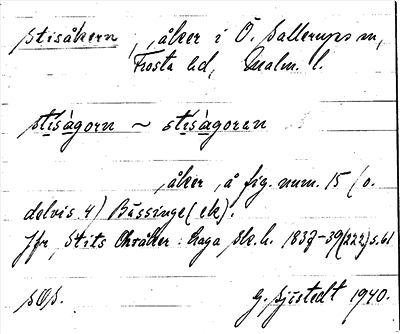 Stisåkern , åker i Ö. Sallerups sn,
Frosta hd, Malm. l.
stisàgorn ~ stisàgoran
, åker , å fig. num. 15 (o.
delvis 4) Bässinge (ek).
Jfr , Stits åker : Laga sk. h. 1837-39 (222) s. 61
SOS. G. Sjöstedt 1940.